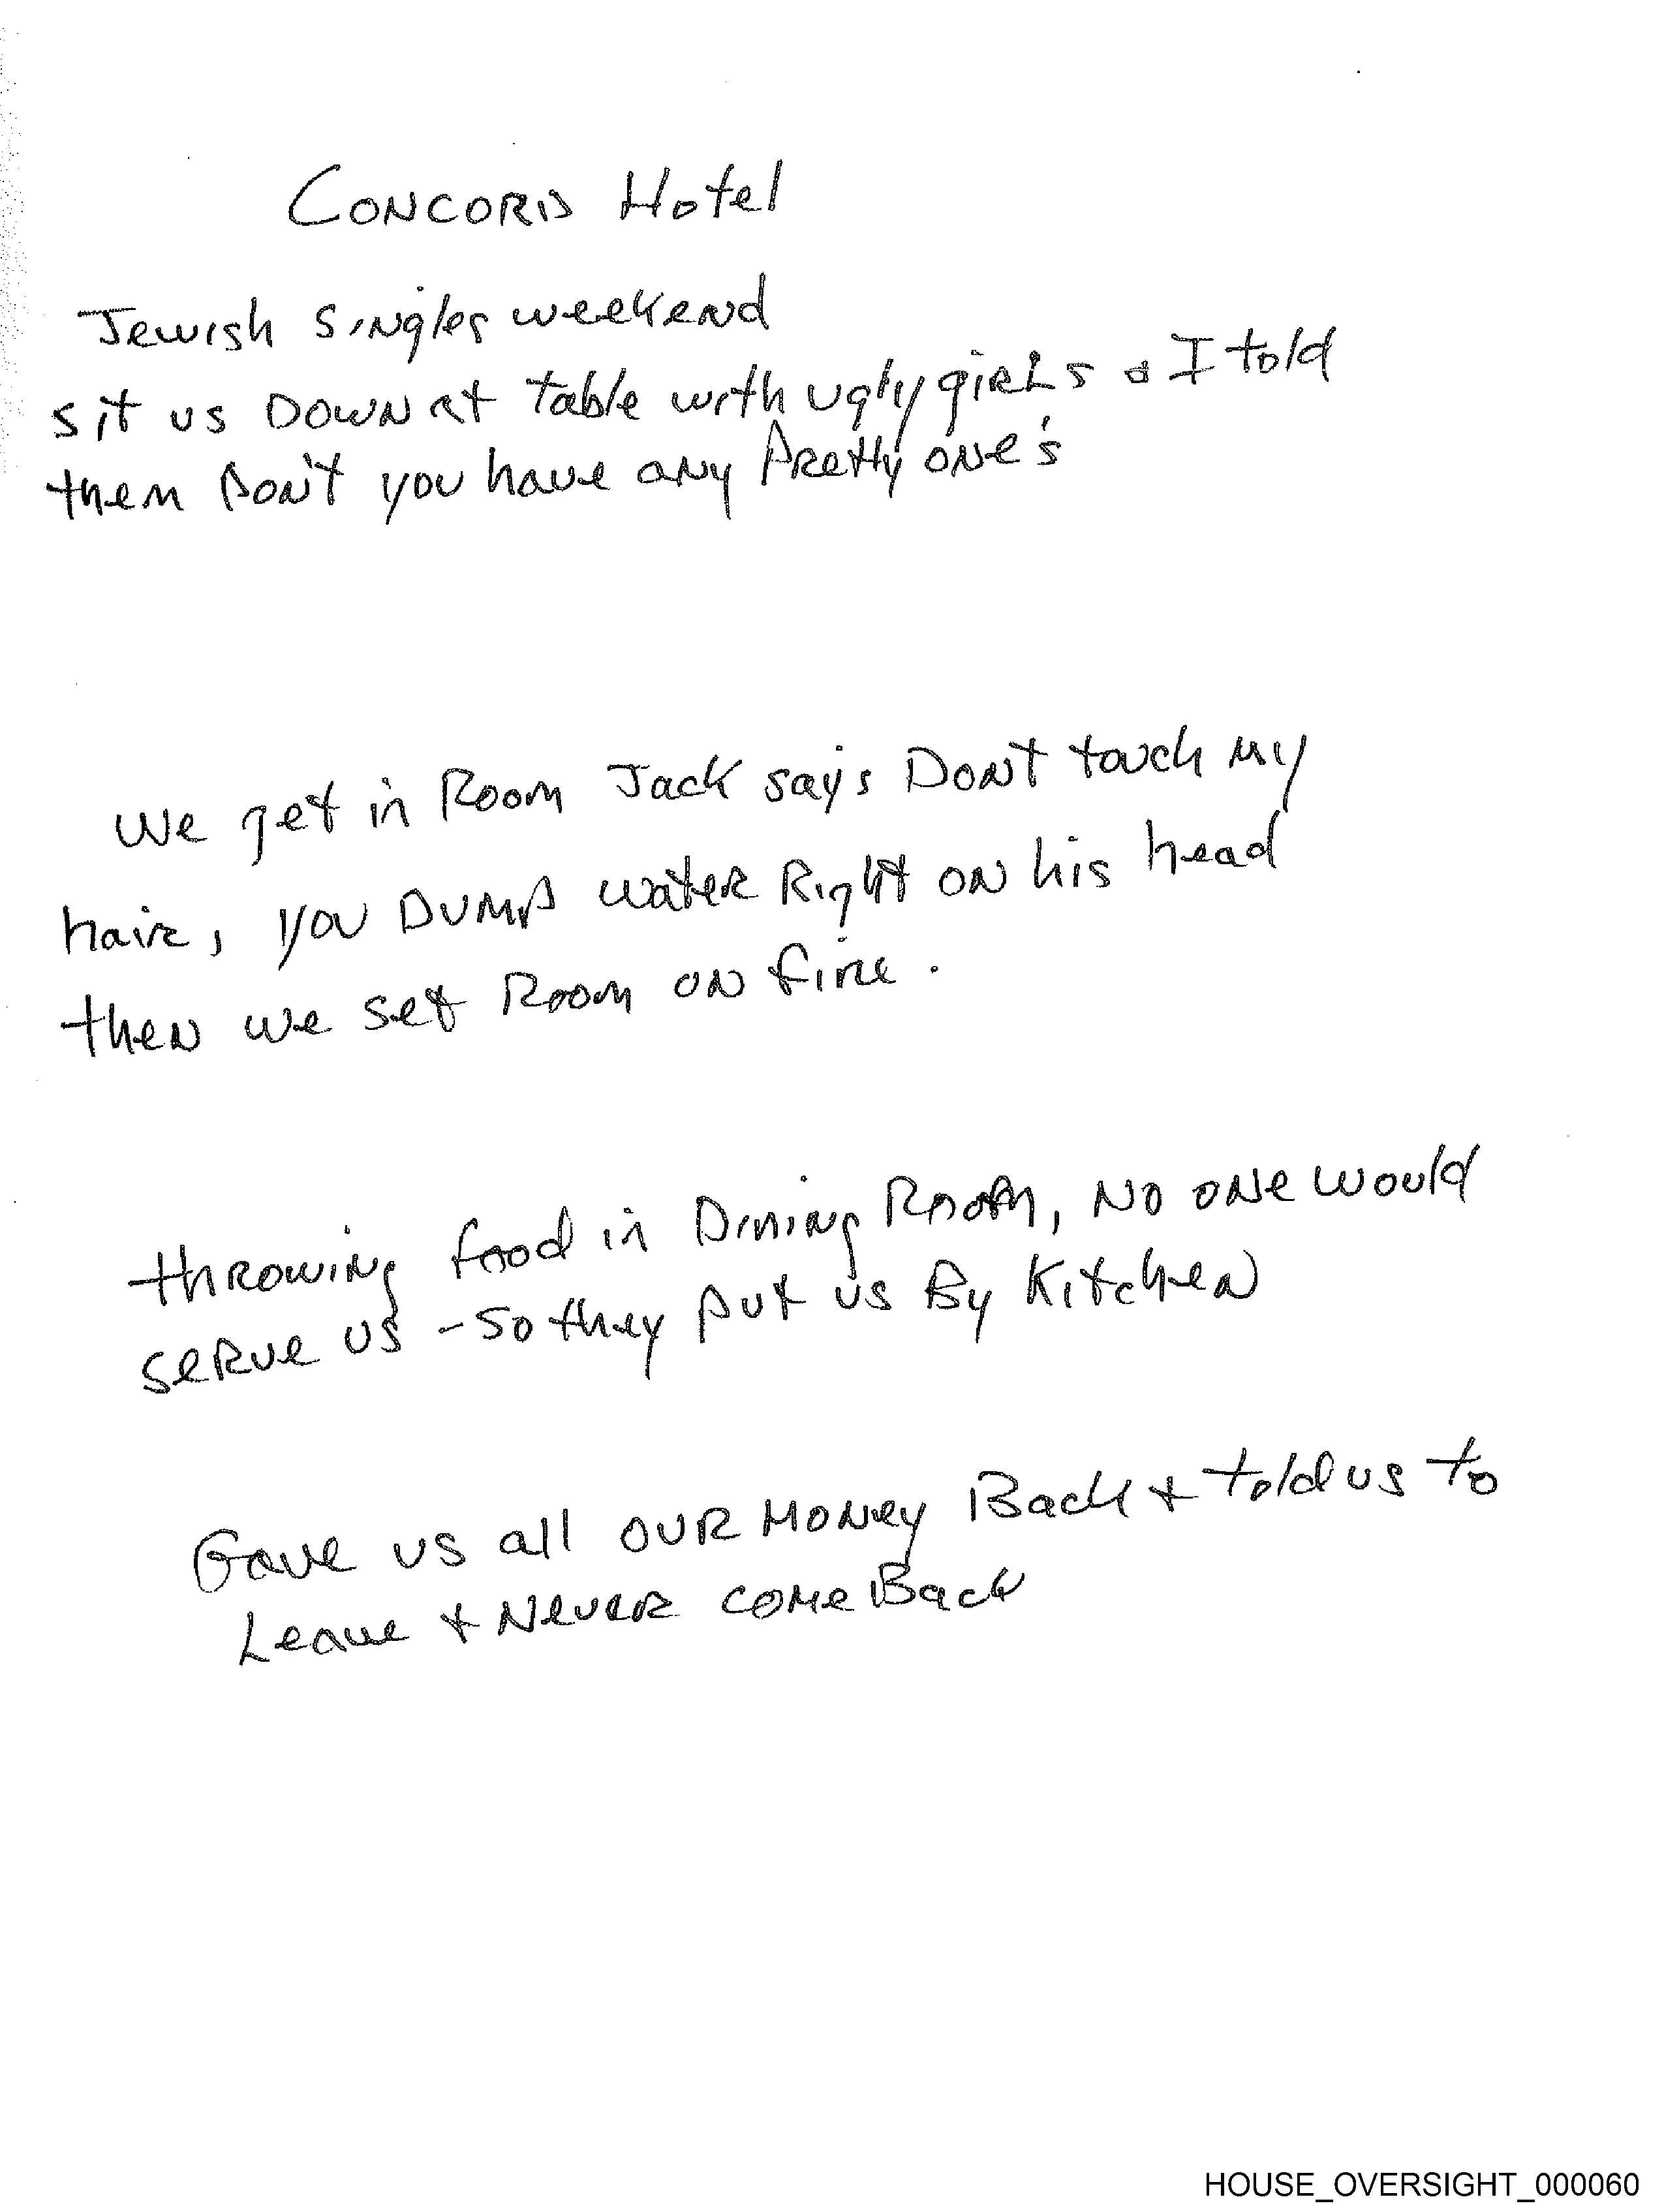 CONCORD Hotel
Jewish Singles weekend
sit us DOWN at table with ugly girls & I told
them Don't you have any Pretty one's
We get in Room Jack says Dont touch my
hair, you Dump water Right on his head
then we set Room on fire.
throwing food in Dining Room, No one would
serve us - so they put us By Kitchen
Gave us all our money Back & told us to
Leave & Never come Back
HOUSE_OVERSIGHT_000060